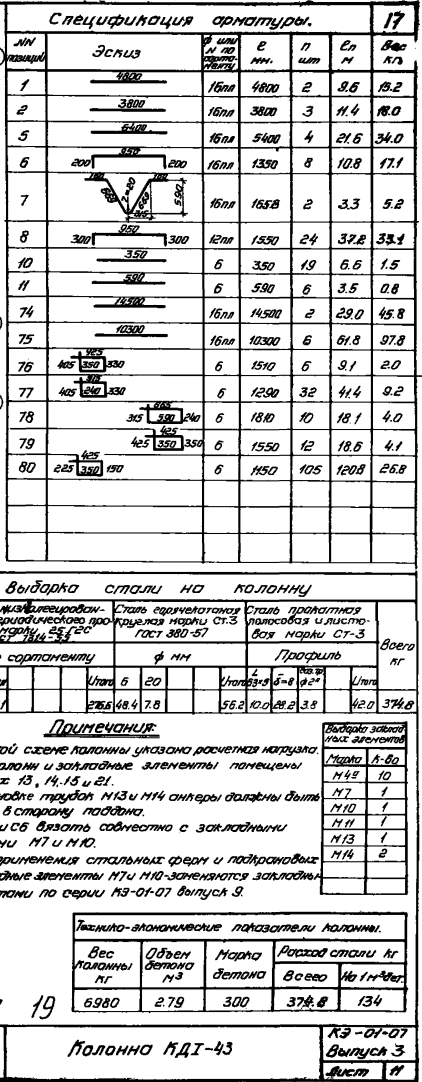 Спецификация арматуры. 17
NN позиций Эскиз ф или N по сортаменту ℓ мм. n шт ℓn м Вес кг
1 4800 16пл 4800 2 9.6 15.2
2 3800 16пл 3800 3 11.4 18.0
5 5400 16пл 5400 4 21.6 34.0
6 200 950 200 16пл 1350 8 10.8 17.1
7 590 16пл 1658 2 3.3 5.2
8 300 950 300 12пл 1550 24 37.2 33.1
10 350 6 350 19 6.6 1.5
11 590 6 590 6 3.5 0.8
74 14500 16пл 14500 2 29.0 45.8
75 10300 16пл 10300 6 61.8 97.8
76 425 405 350 330 6 1510 6 9.1 2.0
77 315 405 240 330 6 1290 32 41.4 9.2
78 315 590 240 6 1810 10 18.1 4.0
79 425 425 350 350 6 1550 12 18.6 4.1
80 425 225 350 150 6 1150 105 120.8 26.8
Выборка стали на колонну
Сталь горячекатаная круглая марки Ст.3 ГОСТ 380-57
Сталь прокатная полосовая и листовая марки Ст-3
Всего кг
сортаменту ф мм Профиль
Итого 6 20 Итого δ=8 Итого
48.4 7.8 56.2 10.0 28.2 3.8 42.0 374.8
Примечания:
ой схеме колонны указана расчетная нагрузка.
лонн и закладные элементы помещены
х 13, 14, 15 и 21.
новке трубок М13 и М14 анкеры должны быть
в сторону поддона.
и С6 вязать совместно с закладными
ми М7 и М10.
применения стальных ферм и подкрановых
дные элементы М7 и М10 заменяются закладны
тами по серии КЭ-01-07 выпуск 9.
Выборка закладных элементов
Марка К-во
М49 10
М7 1
М10 1
М11 1
М13 1
М14 2
Технико-экономические показатели колонны.
Вес колонны кг Объем бетона м³ Марка бетона Расход стали кг
Всего На 1 м³ бет.
6980 2.79 300 374.8 134
19
Колонна КДI-43
КЭ-01-07
Выпуск 3
Лист 11